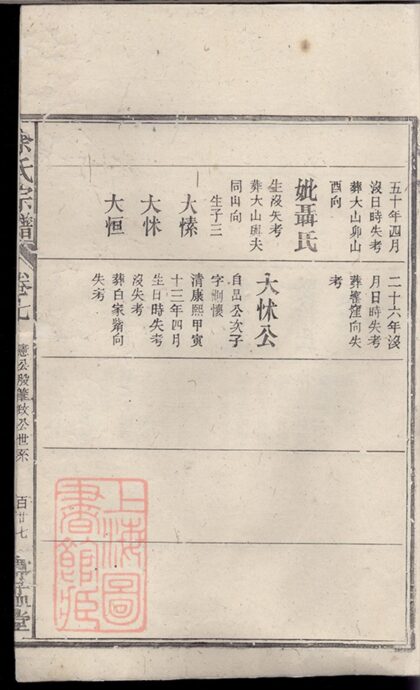 五十年四月
沒日時失考
葬大山卯山
酉向
妣聶氏
生沒失考
葬大山與夫
同山向
生子三
大愫
大怵
大恒
二十六年沒
月日時失考
葬窪向失
考
大怵公
自昌公次子
字懷
清康熙甲寅
十三年四月
生日時失考
沒失考
葬白家向
失考
氏宗譜
卷之七
公股公世系
百廿七
堂
上海圖
書館藏